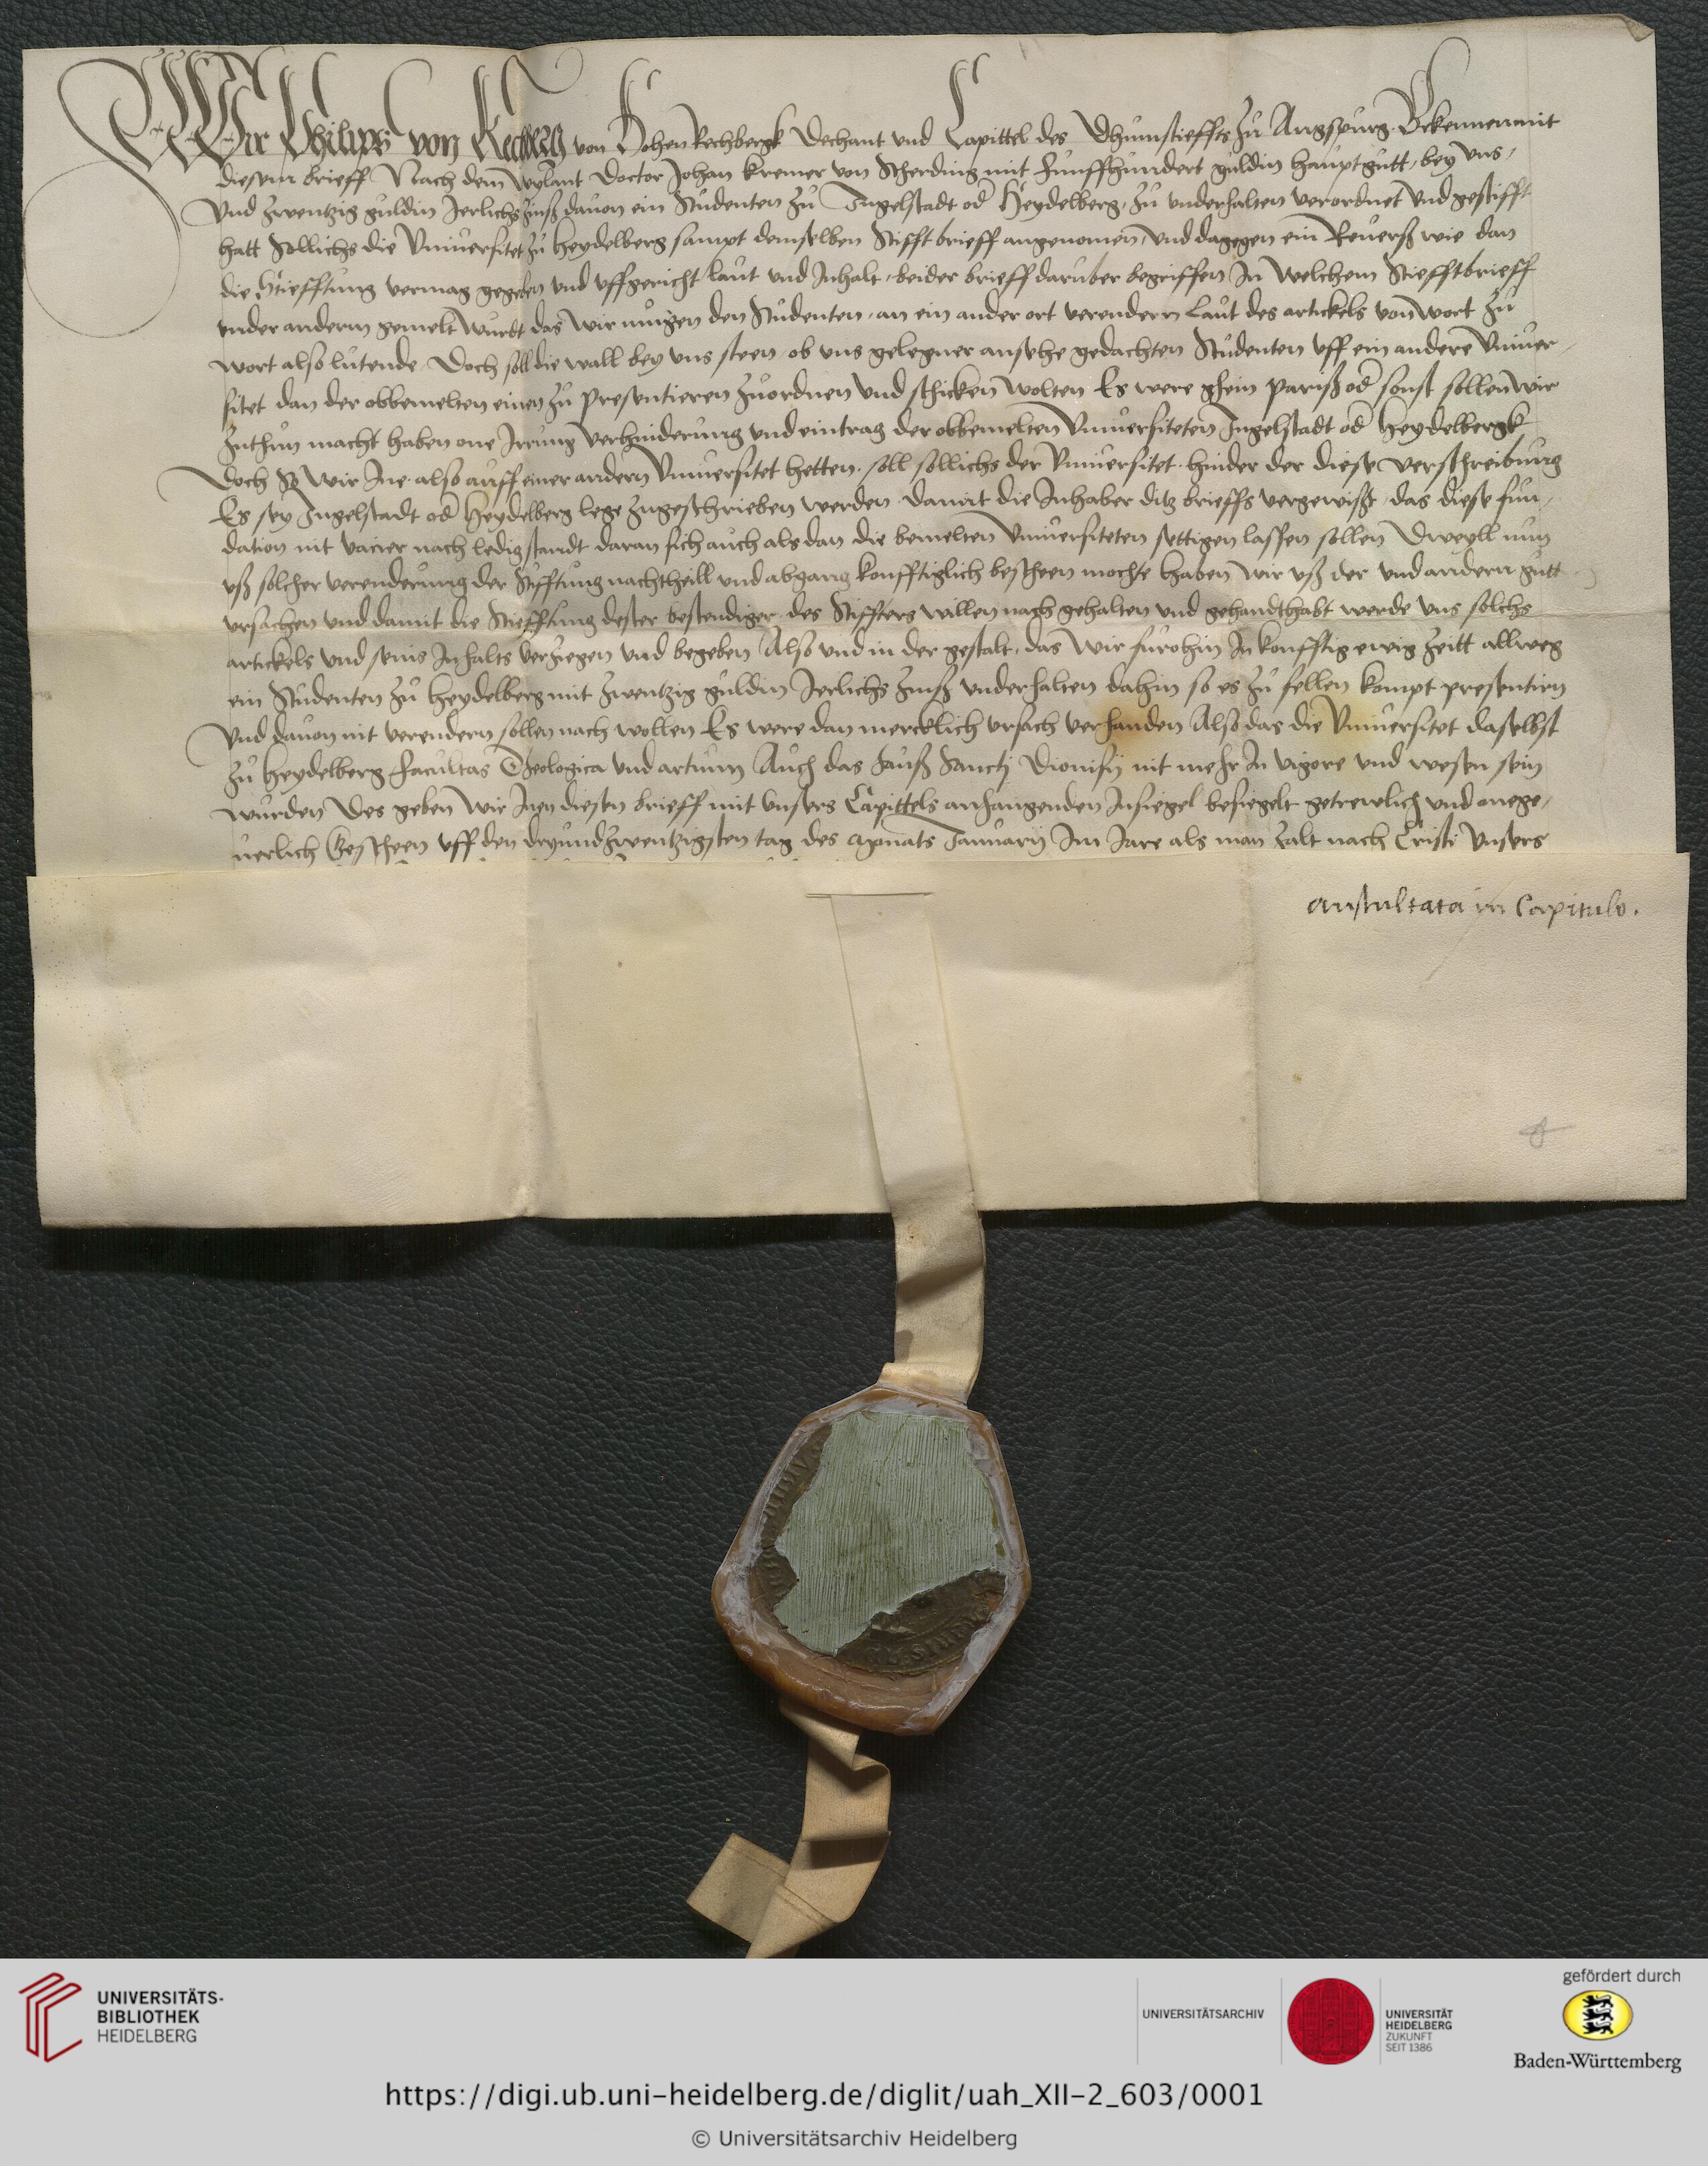 Wir Philips von Rechberg von Hohen Rechbergk Dechant vnd Capittel des Dhumstieffts zu Augspurg Bekennen mit
diesem brieff Nach dem wylant Doctor Johan Kremer von Scherding mit funffhundert guldin hauptgutt, bey vns,
Vnd zwentzig guldin Jerlichs zinß dauon ein Studenten zu Ingelstadt od Heydelberg, zu vnderhalten verordnet vnd gestifft
hatt Sollichs die Vniuersitet zu Heydelberg sampt demselben Stifftbrieff angenomen, vnd dagegen ein Reuerß wie dan
die Stiefftung vermag gegeben vnd vffgericht laut vnd Inhalt beider brieff daruber begriffen In welchem Stiefftbrieff
vnder anderm gemelt wurdt das wir mugen den Studenten, an ein ander ort verendern Laut des artickels von wort zu
wort also lutende, Doch soll die wall bey vns steen ob vns gelegner ansehe gedachten Studenten vff ein andere Vniuer-
sitet dan der obbemelten einen zu presentieren zuordnen vnd schicken wolten Es were ghein pariß od sonst sollen wir
Zuthun macht haben one Irrung verhinderung vnd eintrag der obbemelten Vniuersiteten Ingelstadt od Heydelbergk
Doch So wir Ine also auff einer andern Vniuersitet hetten, soll sollichs der Vniuersitet hinder der diese verschreibung
Es sey Ingelstadt od Heydelberg lege zugeschrieben werden damit die Inhaber ditz brieffs vergewißt, das diese fun-
dation nit vacier nach ledig standt daran sich auch alsdan die bemelten Vniuersiteten settigen lassen sollen Dweyll nun
vß solcher verenderung der Stifftung nachtheill vnd abgang konfftiglich bescheen mochte haben wir vß der vnd andern gutt
vrsachen vnd damit die Stiefftung dester bestendiger des Stiffters willen nach gehalten vnd gehandthabt werde vns solchs
artickels vnd seins Inhalts verziegen vnd begeben Also vnd in der gestalt, das wir furohin In konfftig ewig zeitt allweg
ein Studenten zu Heydelberg mit zwentzig guldin Jerlichs zinß vnderhalten dahin so es zu fellen kompt presentirn
Vnd dauon nit verendern sollen nach wollen Es were dan mercklich vrsach verhanden Also das die Vniuersitet daselbst
zu Heydelberg facultas Theologica vnd artium Auch das hauß Sancti Dionisij nit mehr In vigore vnd wesen sein
wurden Des geben wir Inen diesen brieff mit vnsers Capittels anhangenden Insiegel besiegelt getrewlich vnd onege-
uerlich Bescheen vff den dryundzwentzigsten tag des Monats Januarij Im Jare als man zalt nach Cristi vnsers
auscultata in Capitulo.
UNIVERSITÄTS-
BIBLIOTHEK
HEIDELBERG
UNIVERSITÄTSARCHIV
UNIVERSITÄT
HEIDELBERG
ZUKUNFT
SEIT 1386
gefördert durch
Baden-Württemberg
https://digi.ub.uni-heidelberg.de/diglit/uah_XII-2_603/0001
© Universitätsarchiv Heidelberg